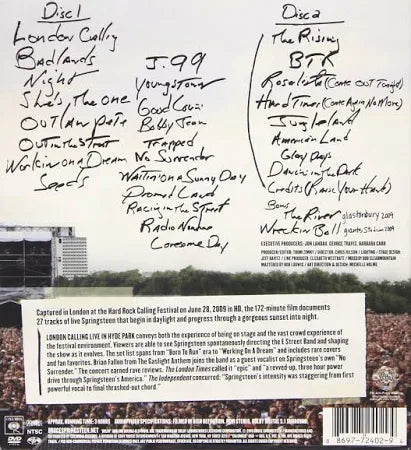 Disc 1
London Calling
Badlands
Night
She's The One
Outlaw Pete
Out in the Street
Workin on a Dream
Seeds
J. 99
Youngstown
Good Lovin'
Bobby Jean
Trapped
No Surrender
Waitin' on a Sunny Day
Promised Land
Racing in the Street
Radio Nowhere
Lonesome Day
Disc 2
The Rising
BTR
Rosalita (Come OUT Tonight)
Hard Times (Come Again No More)
Jungleland
American Land
Glory Days
Dancing in the Dark
Credits (Raise Your Hand)
Bonus
The River glastonbury 2009
Wreckin Ball giants stadium 2009
EXECUTIVE PRODUCERS: JON LANDAU, GEORGE TRAVIS, BARBARA CARR
Captured in London at the Hard Rock Calling Festival on June 28, 2009 in HD, the 172-minute film documents
27 tracks of live Springsteen that begin in daylight and progress through a gorgeous sunset into night.
LONDON CALLING LIVE IN HYDE PARK conveys both the experience of being on stage and the vast crowd experience of
the festival environment. Viewers are able to see Springsteen spontaneously directing the E Street Band and shaping
the show as it evolves. The set list spans from "Born To Run" era to "Working On A Dream" and includes rare covers
and fan favorites. Brian Fallon from The Gaslight Anthem joins the band as a guest vocalist on Springsteen's own "No
Surrender." The concert earned rave reviews. The London Times called it "epic" and "a revved-up, three hour power
drive through Springsteen's America." The Independent concurred: "Springsteen's intensity was staggering from first
powerful vocal to final thrashed-out chord."
NTSC
DVD
8 8697-72402-9 4